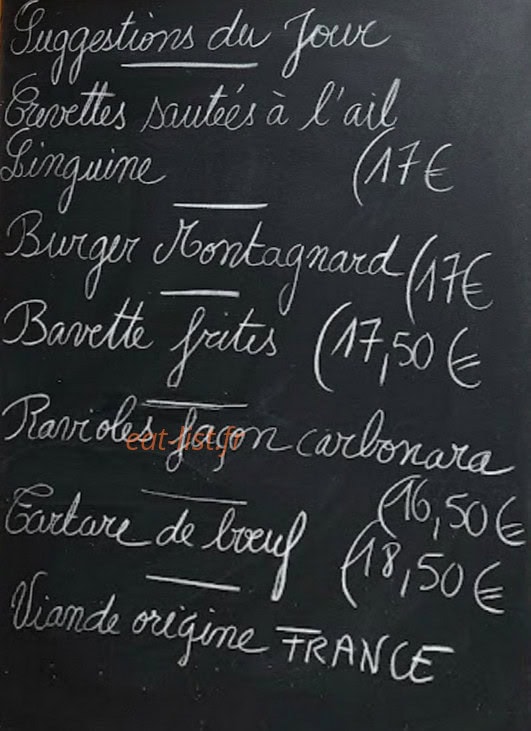 Suggestions du Jour
Crevettes sautées à l'ail
Linguine (17€
Burger Montagnard (17€
Bavette frites (17,50€
Ravioles façon carbonara
eat-list.fr
(16,50€
Tartare de bœuf (18,50€
Viande origine FRANCE